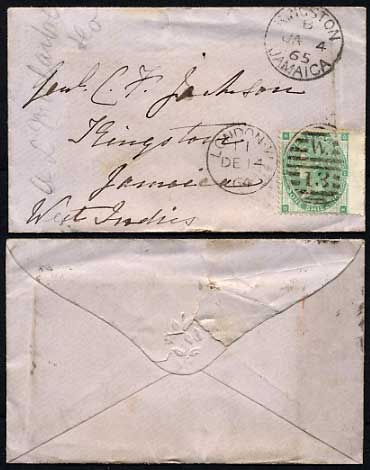 KINGSTON
B
JA 4
65
JAMAICA
C. F. Jackson
Kingston
Jamaica
West Indies
LONDON-W
11
DE 14
64
W
13